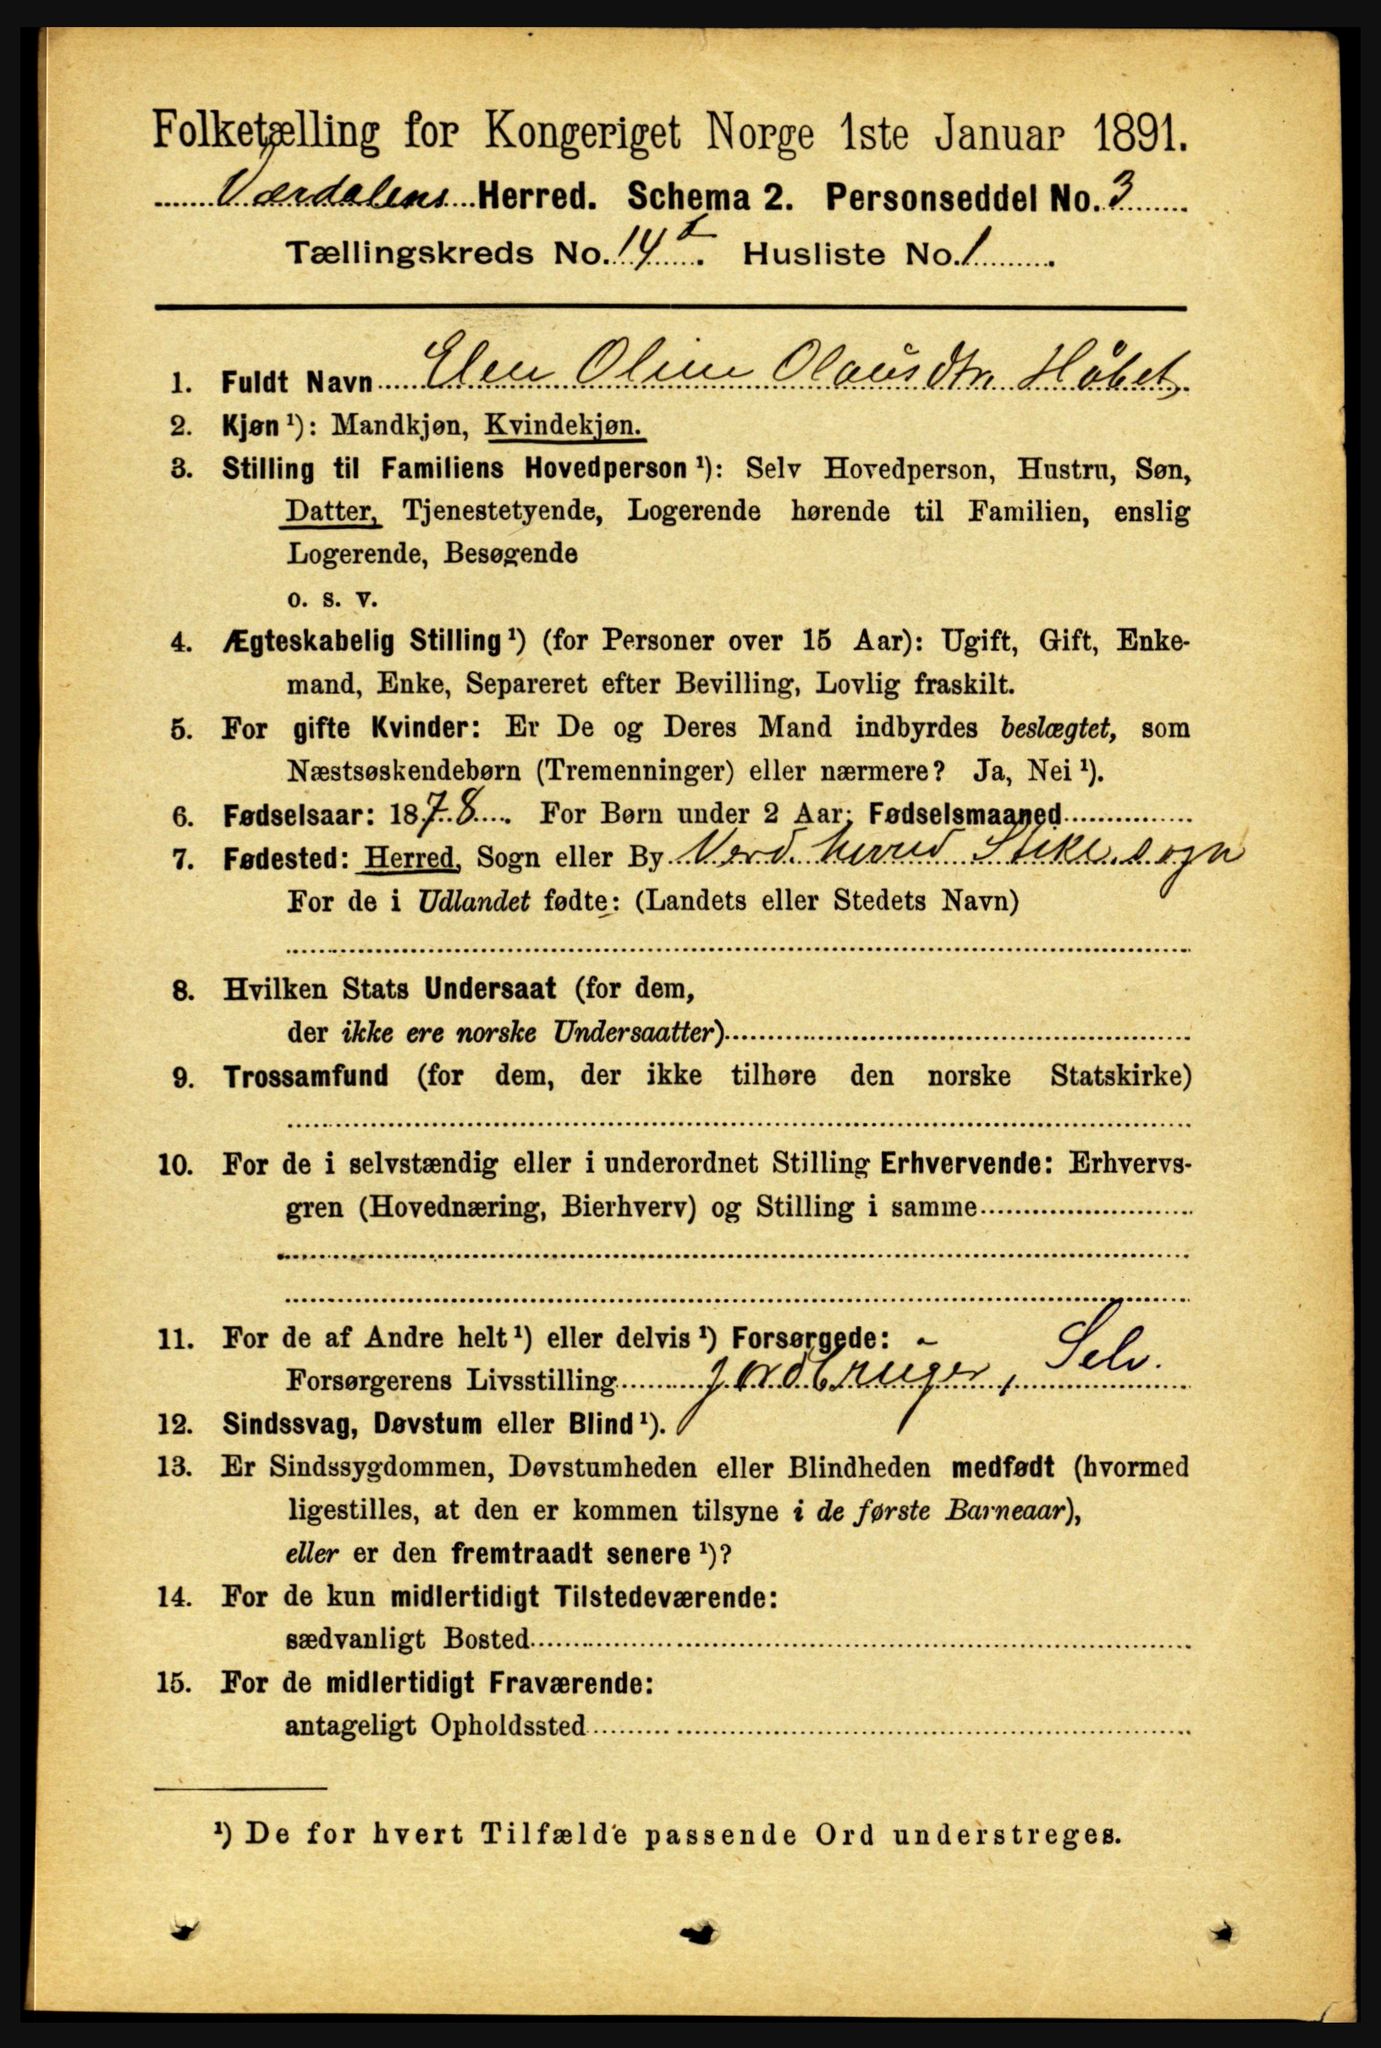 Folketælling for Kongeriget Norge 1ste Januar 1891.
Værdalens Herred. Schema 2. Personseddel No. 3
Tællingskreds No. 14 I. Husliste No. 1
1. Fuldt Navn Elen Oline Olausdtr
2. Kjøn ¹): Mandkjøn, Kvindekjøn.
3. Stilling til Familiens Hovedperson ¹): Selv Hovedperson, Hustru, Søn,
Datter, Tjenestetyende, Logerende hørende til Familien, enslig
Logerende, Besøgende
o. s. v.
4. Ægteskabelig Stilling ¹) (for Personer over 15 Aar): Ugift, Gift, Enke-
mand, Enke, Separeret efter Bevilling, Lovlig fraskilt.
5. For gifte Kvinder: Er De og Deres Mand indbyrdes beslægtet, som
Næstsøskendebørn (Tremenninger) eller nærmere? Ja, Nei ¹).
6. Fødselsaar: 1878. For Børn under 2 Aar: Fødselsmaaned
7. Fødested: Herred, Sogn eller By Verd. herred Stikl. sogn
For de i Udlandet fødte: (Landets eller Stedets Navn)
8. Hvilken Stats Undersaat (for dem,
der ikke ere norske Undersaatter)
9. Trossamfund (for dem, der ikke tilhøre den norske Statskirke)
10. For de i selvstændig eller i underordnet Stilling Erhvervende: Erhvervs-
gren (Hovednæring, Bierhverv) og Stilling i samme
11. For de af Andre helt ¹) eller delvis ¹) Forsørgede:
Forsørgerens Livsstilling Jordbruger, Selv.
12. Sindssvag, Døvstum eller Blind ¹).
13. Er Sindssygdommen, Døvstumheden eller Blindheden medfødt (hvormed
ligestilles, at den er kommen tilsyne i de første Barneaar),
eller er den fremtraadt senere ¹)?
14. For de kun midlertidigt Tilstedeværende:
sædvanligt Bosted
15. For de midlertidigt Fraværende:
antageligt Opholdssted
¹) De for hvert Tilfælde passende Ord understreges.